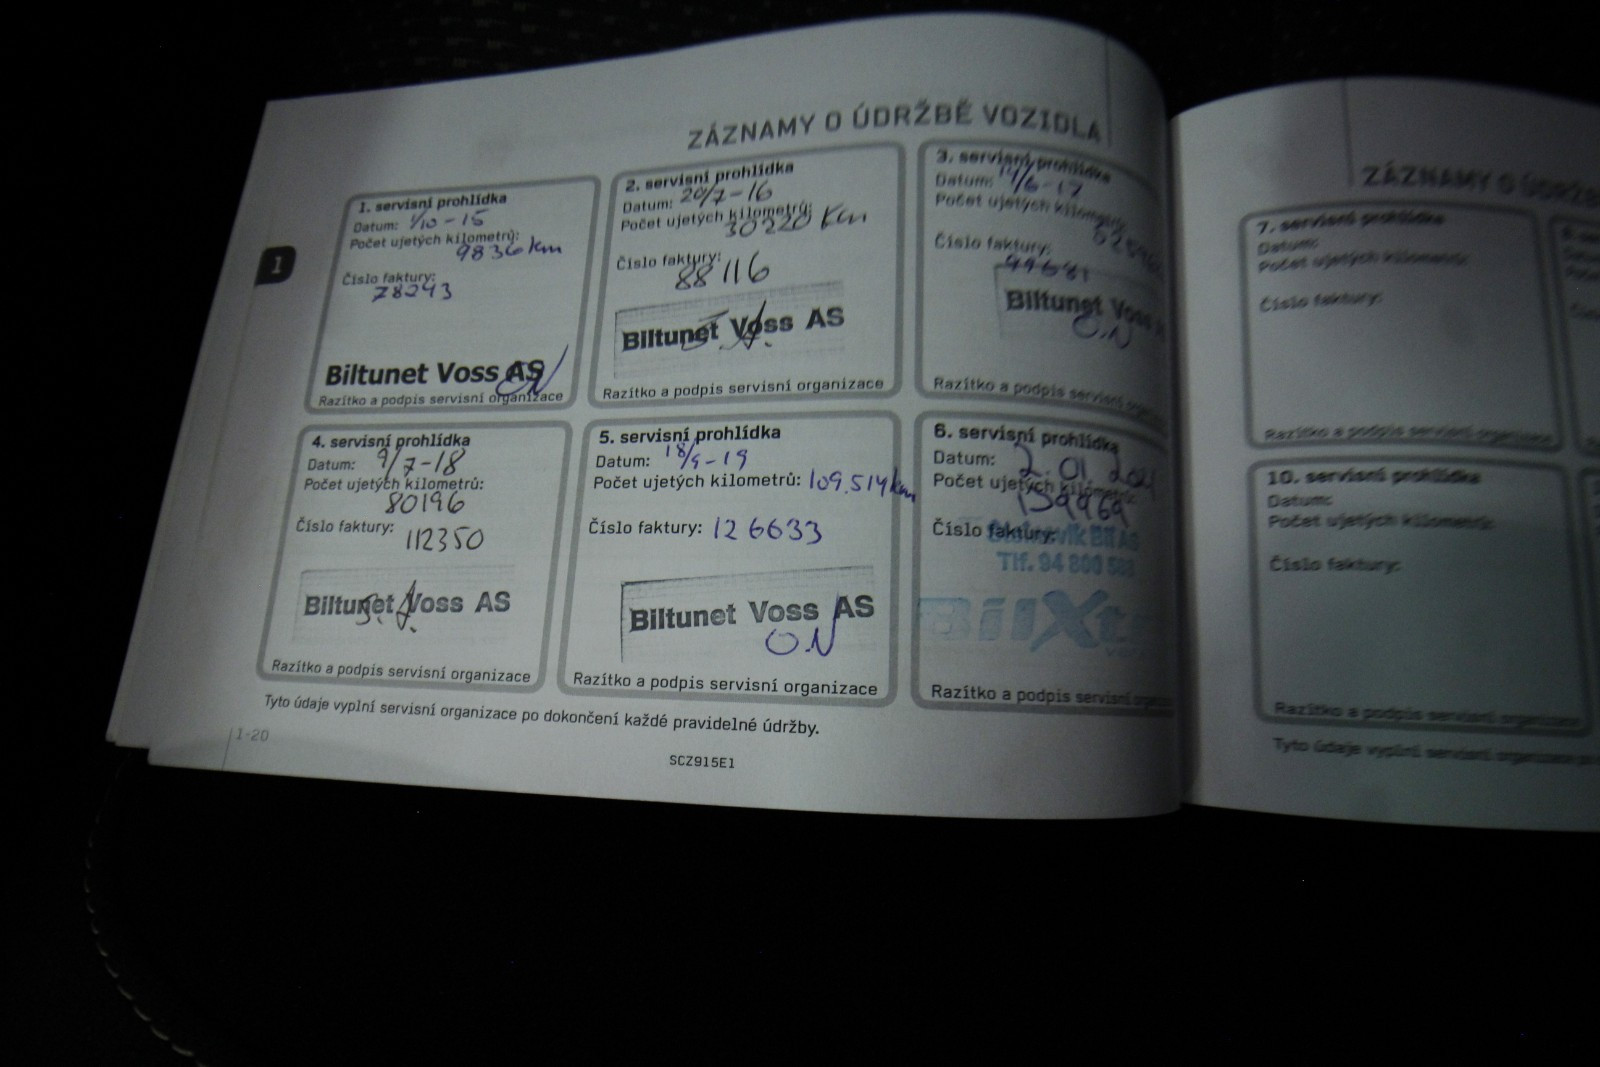 ZÁZNAMY O ÚDRŽBĚ VOZIDLA
1. servisní prohlídka
Datum: 1/10-15
Počet ujetých kilometrů:
9836 km
Číslo faktury:
78243
Biltunet Voss AS
ON
Razítko a podpis servisní organizace
2. servisní prohlídka
Datum: 20/7-16
Počet ujetých kilometrů:
30220 Km
Číslo faktury:
88116
Biltunet Voss AS
Razítko a podpis servisní organizace
3. servisní prohlídka
Datum: 14/6-17
Počet ujetých kilometrů:
Číslo faktury:
99681
Biltunet Voss
O.N
Razítko a podpis servisní
4. servisní prohlídka
Datum: 9/7-18
Počet ujetých kilometrů:
80196
Číslo faktury:
112350
Biltunet Voss AS
Razítko a podpis servisní organizace
5. servisní prohlídka
Datum: 18/9-19
Počet ujetých kilometrů: 109.514 km
Číslo faktury: 126633
Biltunet Voss AS
O.N
Razítko a podpis servisní organizace
6. servisní prohlídka
Datum: 2.01 2021
Počet ujetých kilometrů:
139969
Číslo faktury:
Bil AS
Tlf. 94 800
BilXt
Razítko a podpis servisní
Tyto údaje vyplní servisní organizace po dokončení každé pravidelné údržby.
1
1-20
SCZ915E1
ZÁZNAMY O ÚDRŽB
7. servisní prohlídka
Datum:
Počet ujetých kilometrů:
Číslo faktury:
Razítko a podpis servisní organizace
10. servisní prohlídka
Datum:
Počet ujetých kilometrů:
Číslo faktury:
Razítko a podpis servisní organizace
Tyto údaje vyplní servisní organizace